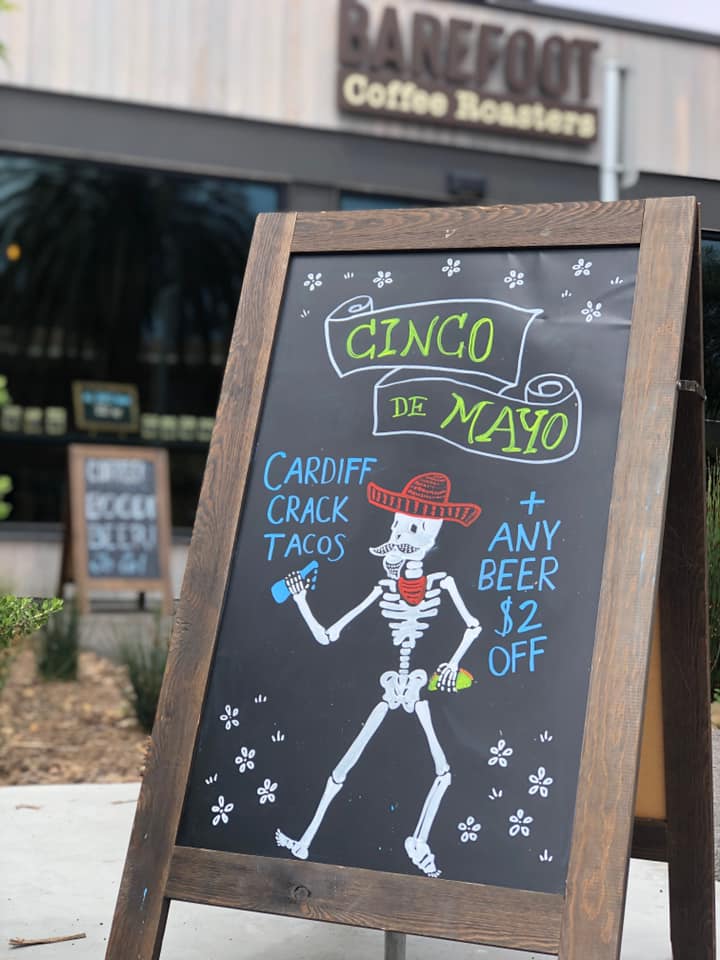 BAREFOOT
Coffee Roasters
CINCO
DE MAYO
CARDIFF
CRACK
TACOS
+
ANY
BEER
$2
OFF